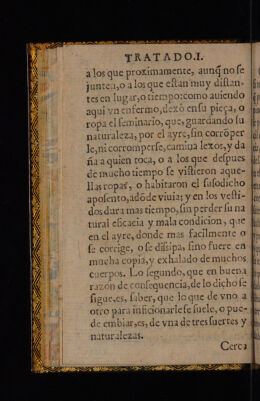 TRATADO.I.
a los que proximamente, aunq̃ no se
junten, o a los que estan muy distan-
tes en lugar, o tiempo: como auiendo
aqui vn enfermo, dexò en su pieça, o
ropa el seminario, que, guardando su
naturaleza, por el ayre, sin corrõper
le, ni corromperse, camina lexos, y da
ña a quien toca, o a los que despues
de mucho tiempo se vistieron aque-
llas ropas, o habitaron el susodicho
aposento, adõde viuia; y en los vesti-
dos dura mas tiempo, sin perder su na
tural eficacia y mala condicion, que
en el ayre, donde mas facilmente o
se corrige, o se dissipa, sino fuere en
mucha copia, y exhalado de muchos
cuerpos. Lo segundo, que en buena
razon de consequencia, de lo dicho se
sigue, es, saber, que lo que de vno a
otro para inficionarle se suele, o pue-
de embiar, es, de vna de tres suertes y
naturalezas.
Cerca